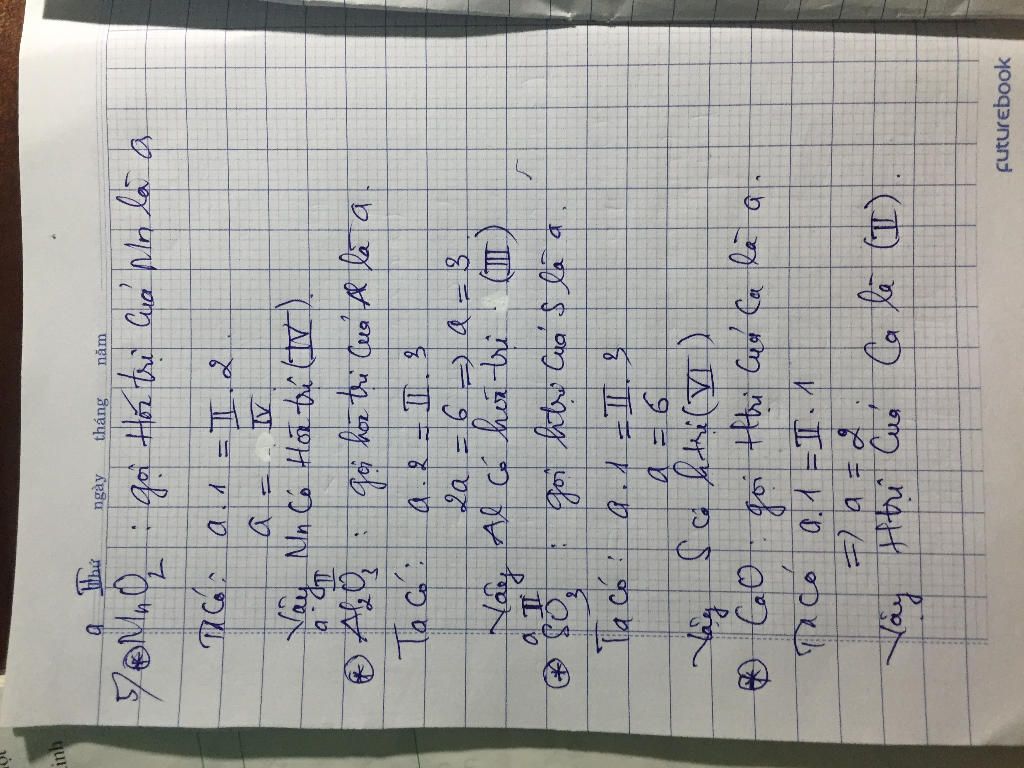 Thứ ngày tháng năm
a II
5/ * MnO2 : gọi Hóa trị của Mn là a
Ta có: a . 1 = II . 2.
a = IV
Vậy Mn có Hóa trị (IV).
a II
* Al2O3 : gọi hóa trị của Al là a.
Ta có: a . 2 = II . 3
2a = 6 => a = 3
Vậy Al có hóa trị (III)
a II
* SO3 : gọi htrị của S là a.
Ta có: a . 1 = II . 3
a = 6
Vậy S có htrị (VI)
* CaO : gọi Htrị của Ca là a.
Ta có a . 1 = II . 1
=> a = 2
Vậy Htrị của Ca là (II).
futurebook